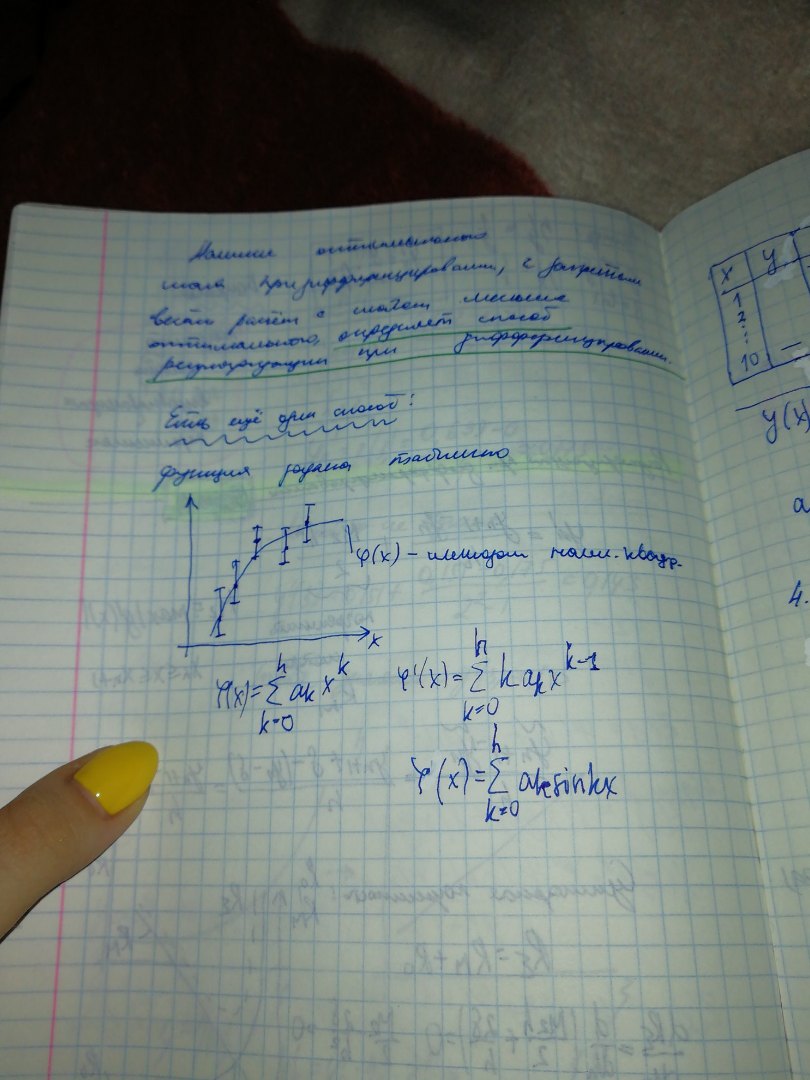 Наличие оптимального
шага при дифференцировании, с запретом
вести расчёт с шагом меньше
оптимального, определяет способ
регуляризации при дифференцировании.
Есть ещё один способ:
функция задана таблично
φ(x) – методом наим. квадр.
x
φ(x) = ∑ₖ₌₀ⁿ aₖ xᵏ
φ'(x) = ∑ₖ₌₀ⁿ k aₖ x^(k-1)
φ(x) = ∑ₖ₌₀ⁿ aₖ sin kx
x y
1
2
⋮
10 —
y(x)
a
4.